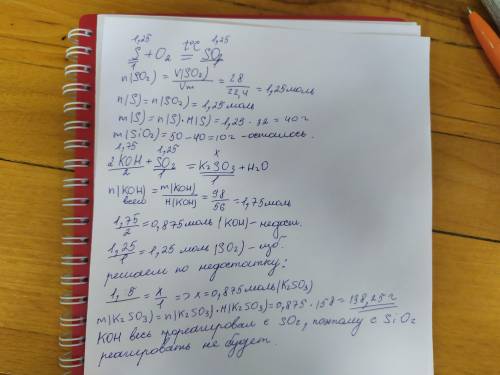 1,25 1,25
S + O₂ t°C = SO₂
1 1
n(SO₂) = V(SO₂)/Vm = 28/22,4 = 1,25 моль
n(S) = n(SO₂) = 1,25 моль
m(S) = n(S)·M(S) = 1,25 · 32 = 40 г
m(SiO₂) = 50 - 40 = 10 г - осталось.
1,75 1,25 x
2KOH + SO₂ = K₂SO₃ + H₂O
2 1 1
n(KOH) всего = m(KOH)/M(KOH) = 98/56 = 1,75 моль
1,75/2 = 0,875 моль (KOH) - недост.
1,25/1 = 1,25 моль (SO₂) - изб.
решаем по недостатку:
= x/1 => x = 0,875 моль (K₂SO₃)
m(K₂SO₃) = n(K₂SO₃)·M(K₂SO₃) = 0,875 · 158 = 138,25 г
KOH весь прореагировал с SO₂, поэтому с SiO₂
реагировать не будет.